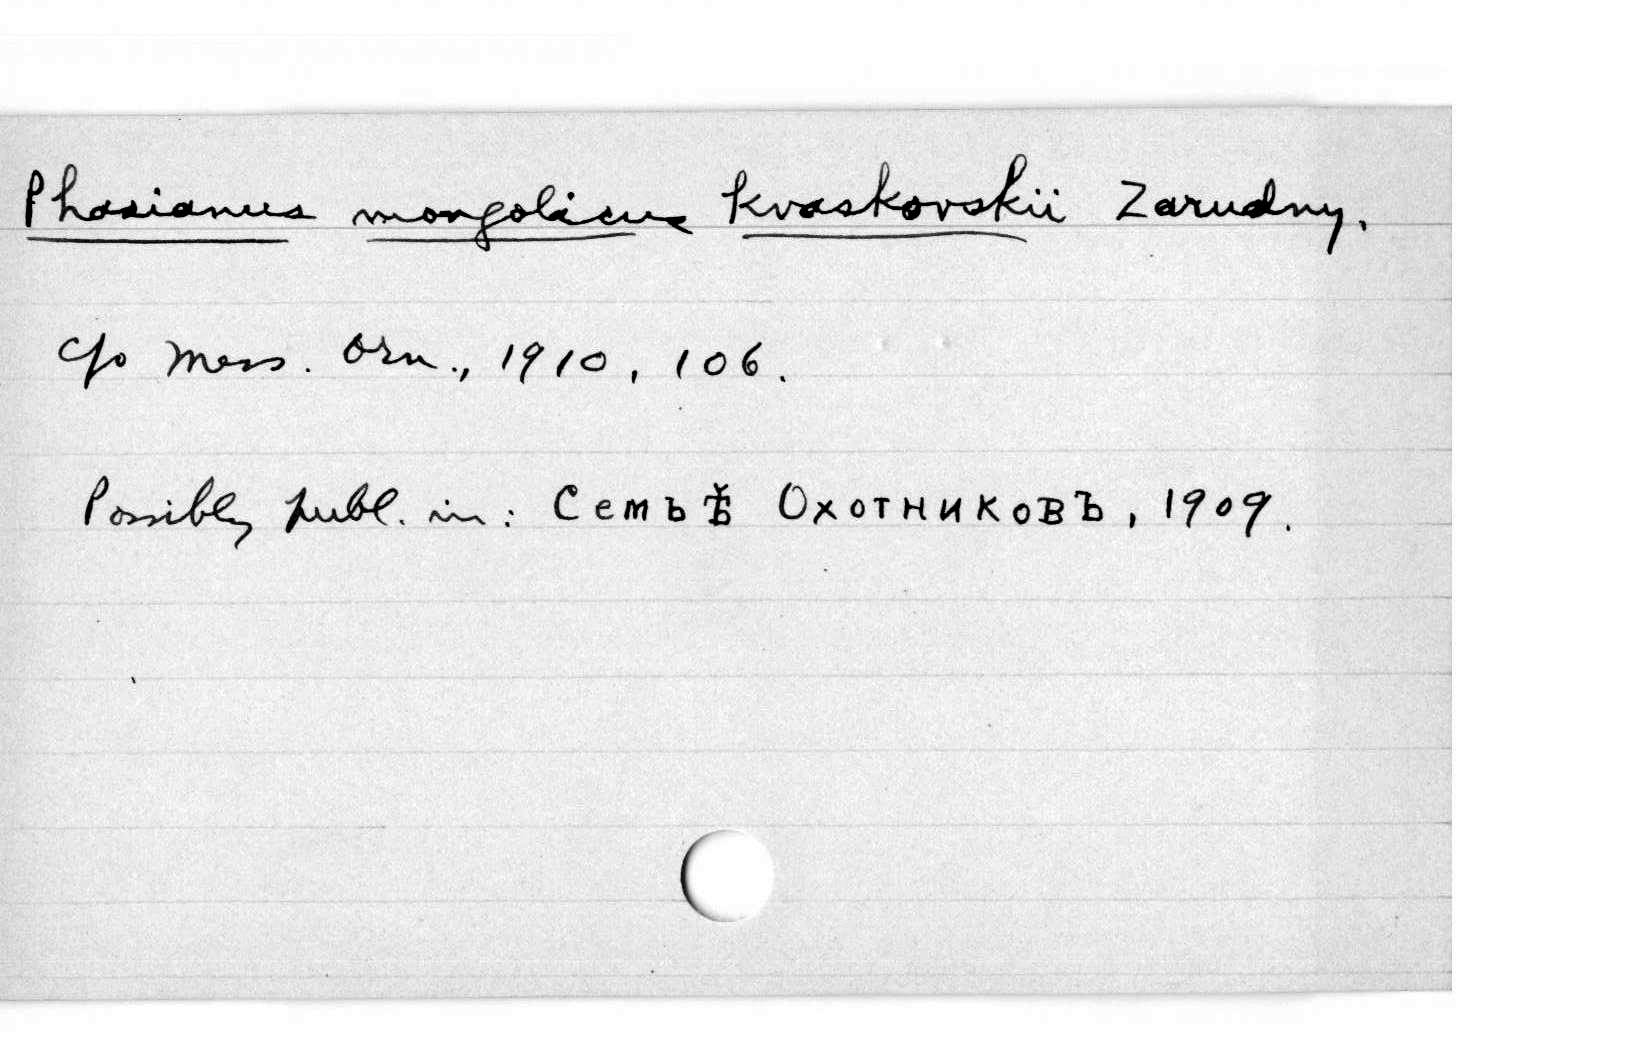 Phasianus mongolicus kvaskovskii Zarudny.
c/o Mess. Orn., 1910, 106.
Possibly publ. in: Семьѣ Охотниковъ, 1909.